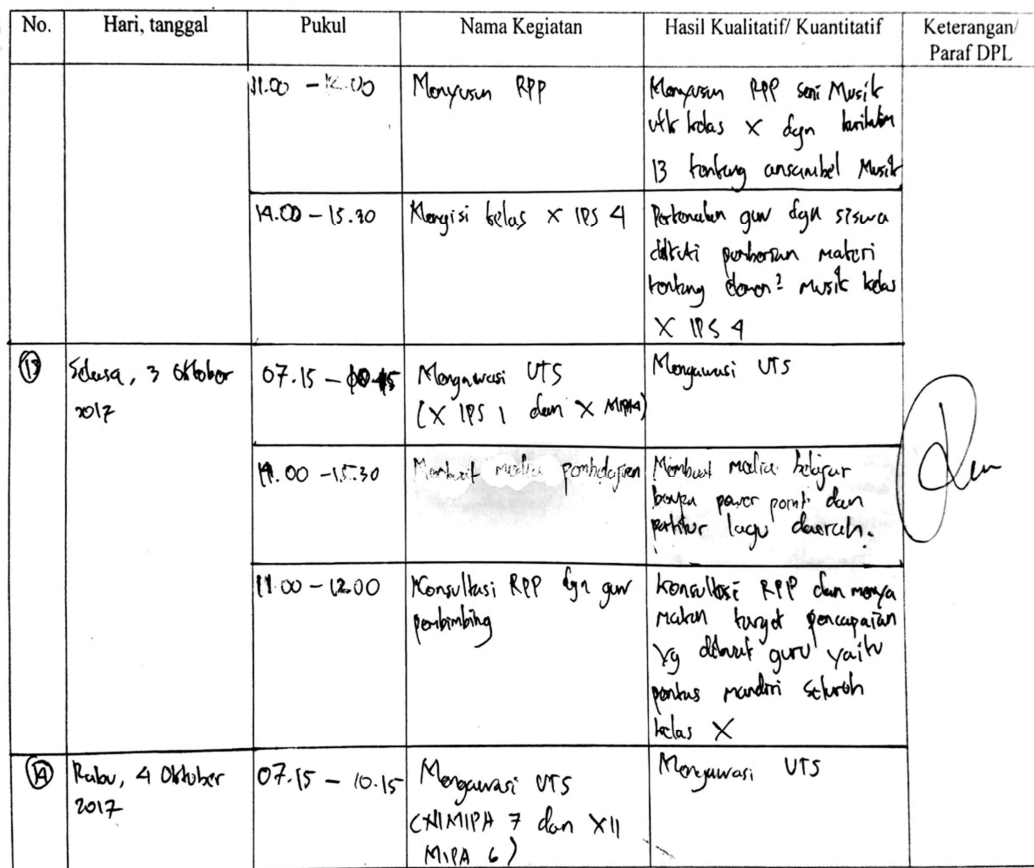 No. Hari, tanggal Pukul Nama Kegiatan Hasil Kualitatif/ Kuantitatif Keterangan/
Paraf DPL
11.00 - 12.00 Menyusun RPP Menyusun RPP seni Musik
utk kelas X dgn kurikulum
13 tentang ansambel Musik
14.00 - 15.30 Mengisi kelas X IPS 4 Pertemuan guru dgn siswa
diikuti pemberian materi
tentang Musik kelas
X IPS 4
13 Selasa, 3 Oktober 07.15 - 10.15 Mengawasi UTS Mengawasi UTS
2017 (X IPS 1 dan X MIPA 4)
14.00 - 15.30 Membuat media pembelajaran Membuat media belajar
berupa power point dan
partitur lagu daerah.
11.00 - 12.00 Konsultasi RPP dgn guru Konsultasi RPP dan menya
pembimbing makan target pencapaian
yg dibuat guru yaitu
pentas mandiri seluruh
kelas X
14 Rabu, 4 Oktober 07.15 - 10.15 Mengawasi UTS Mengawasi UTS
2017 (XI MIPA 7 dan XII
MIPA 6)